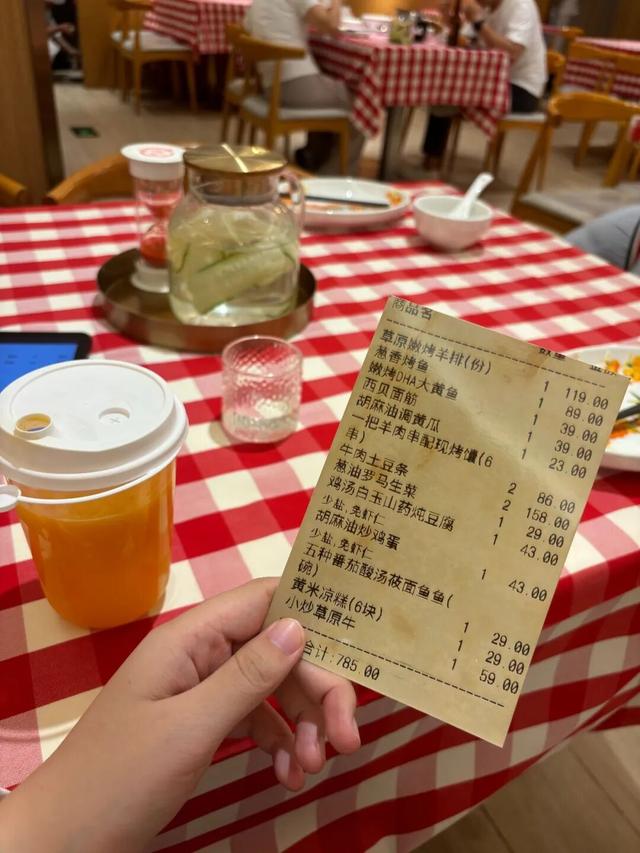 商品名
草原嫩烤羊排(份) 1 119.00
葱香烤鱼 1 89.00
嫩烤DHA大黄鱼 1 39.00
西贝面筋 1 39.00
胡麻油调黄瓜 1 23.00
一把羊肉串配现烤馕(6
串) 2 86.00
牛肉土豆条 2 158.00
葱油罗马生菜 1 29.00
鸡汤白玉山药炖豆腐 1 43.00
少盐,免虾仁
胡麻油炒鸡蛋 1 43.00
少盐,免虾仁
五种番茄酸汤莜面鱼鱼(
碗) 1 29.00
黄米凉糕(6块) 1 29.00
小炒草原牛 1 59.00
合计:785.00